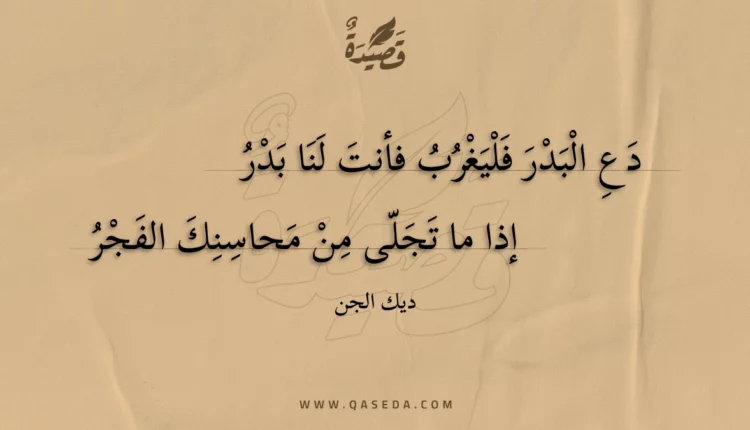 قَصِيْدَةٌ
دَعِ الْبَدْرَ فَلْيَغْرُبُ فأنتَ لَنَا بَدْرُ
إذا ما تَجَلّى مِنْ مَحاسِنِكَ الفَجْرُ
ديك الجن
WWW.QASEDA.COM